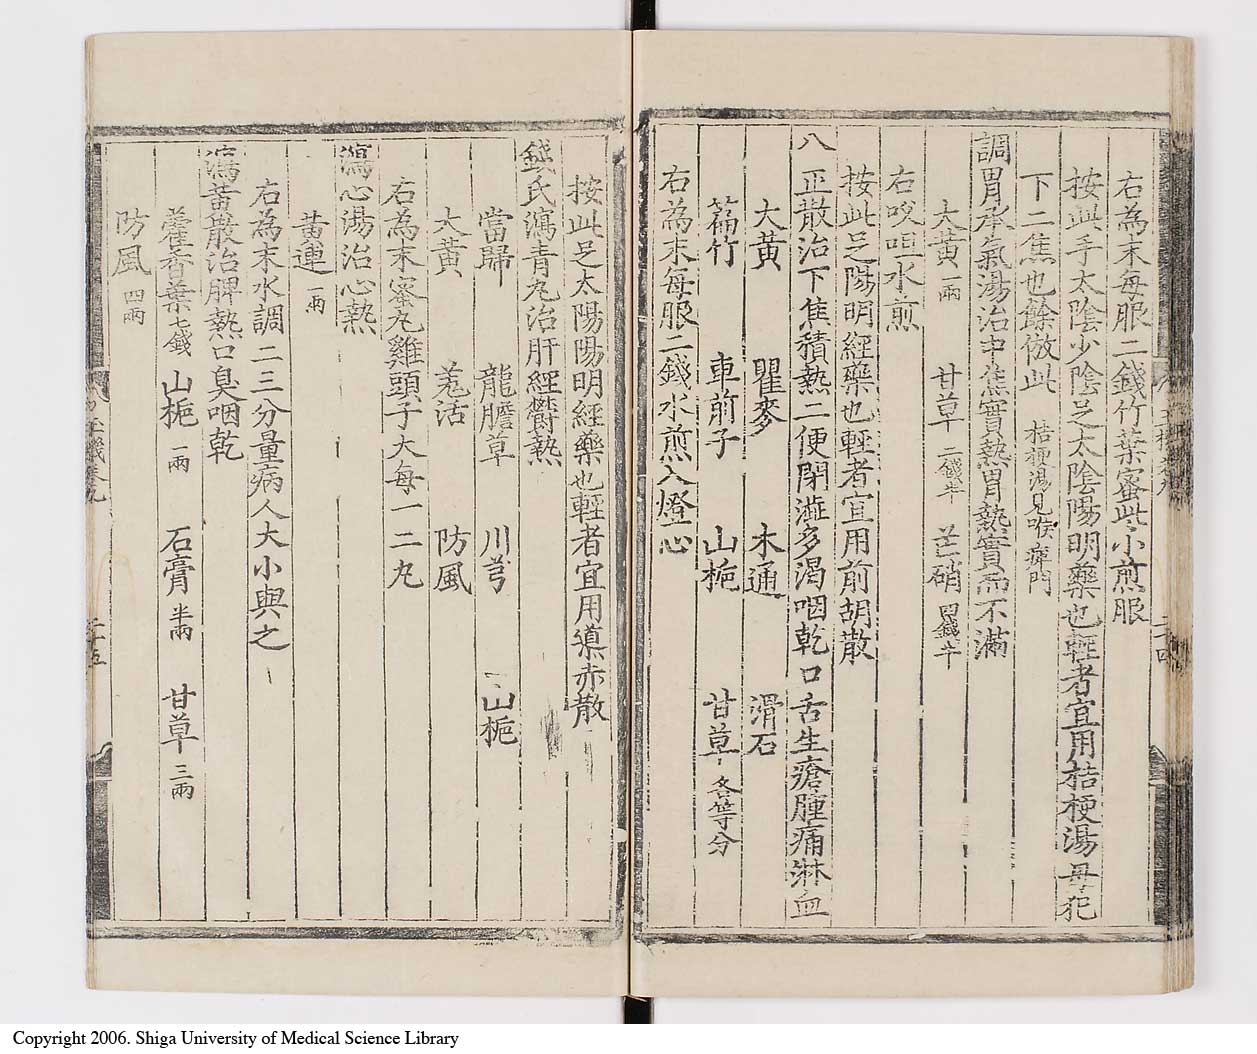 右為末每服二錢竹葉蜜些小煎服
按此手太陰少陰足太陰陽明藥也輕者宜用桔梗湯毋犯
下二焦也餘倣此 桔梗湯見喉痺門
調胃承氣湯治中焦實熱胃熱實而不滿
大黃一兩 甘草二錢半 芒硝四錢半
右㕮咀水煎
按此足陽明經藥也輕者宜用前胡散
八正散治下焦積熱二便閉澁多渴咽乾口舌生瘡腫痛淋血
大黃 瞿麥 木通 滑石
萹竹 車前子 山梔 甘草各等分
右為末每服二錢水煎入燈心
按此足太陽陽明經藥也輕者宜用導赤散
錢氏瀉青丸治肝經欝熱
當歸 龍膽草 川芎 山梔
大黃 羌活 防風
右為末蜜丸雞頭子大每一二丸
瀉心湯治心熱
黃連一兩
右為末水調二三分量病人大小與之
瀉黃散治脾熱口臭咽乾
藿香葉七錢 山梔一兩 石膏半兩 甘草三兩
防風四兩
二十五
Copyright 2006. Shiga University of Medical Science Library